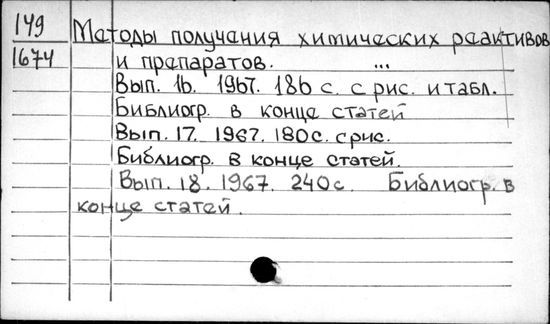 149
1674
Методы получения химических реактивов
и препаратов. ...
Вып. 16. 1967. 186 с. с рис. и табл.
Библиогр. в конце статей
Вып. 17. 1967. 180с. с рис.
Библиогр. в конце статей.
Вып. 18. 1967. 240с. Библиогр. в
конце статей.